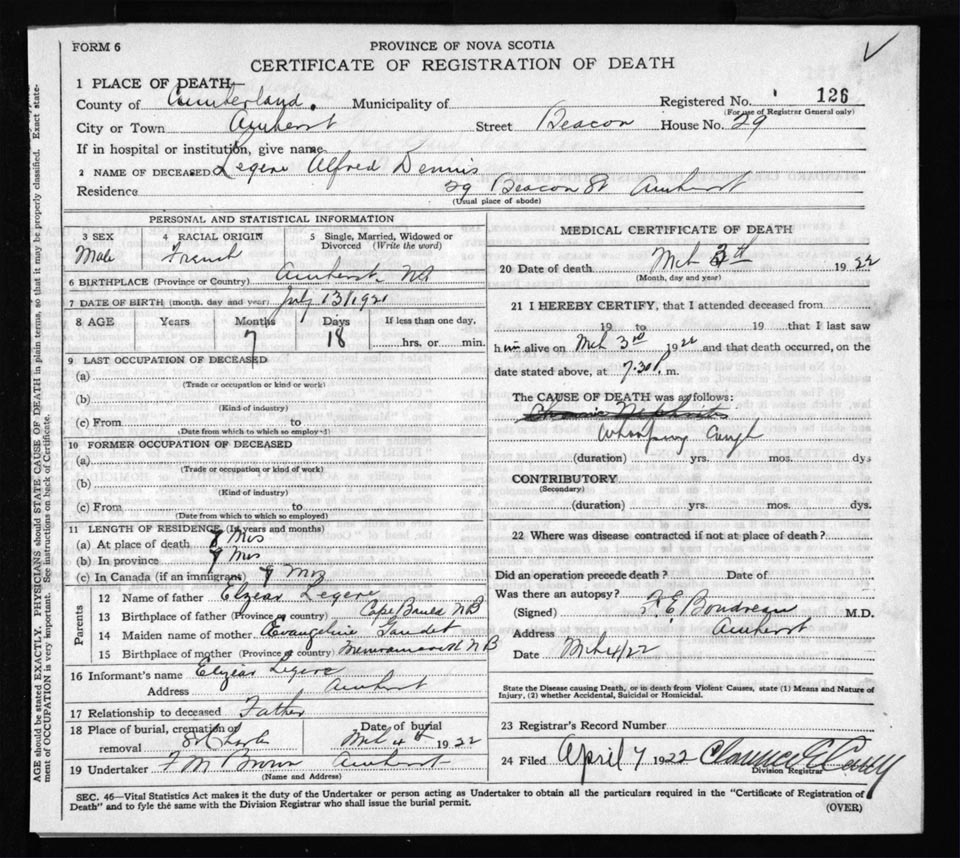 FORM 6
PROVINCE OF NOVA SCOTIA
CERTIFICATE OF REGISTRATION OF DEATH
1 PLACE OF DEATH—
County of Cumberland. Municipality of Registered No. 126
(For use of Registrar General only)
City or Town Amherst Street Beacon House No. 29
If in hospital or institution, give name
2 NAME OF DECEASED Legere Alfred Dennis
Residence 29 Beacon St Amherst
(Usual place of abode)
PERSONAL AND STATISTICAL INFORMATION
3 SEX 4 RACIAL ORIGIN 5 Single, Married, Widowed or Divorced (Write the word)
Male French
6 BIRTHPLACE (Province or Country) Amherst NS
7 DATE OF BIRTH (month, day and year) July 13/1921
8 AGE Years Months Days If less than one day,
7 18 hrs. or min.
9 LAST OCCUPATION OF DECEASED
(a)
(Trade or occupation or kind or work)
(b)
(Kind of industry)
(c) From to
(Date from which to which so employed)
10 FORMER OCCUPATION OF DECEASED
(a)
(Trade or occupation or kind of work)
(b)
(Kind of industry)
(c) From to
(Date from which to which so employed)
11 LENGTH OF RESIDENCE (In years and months)
(a) At place of death Mos
(b) In province Mos
(c) In Canada (if an immigrant) Mos
Parents
12 Name of father Elzear Legere
13 Birthplace of father (Province or country) Cape NB
14 Maiden name of mother Evangeline Gaudet
15 Birthplace of mother (Province or country) Memramcook N B
16 Informant's name Elzear Legere
Address Amherst
17 Relationship to deceased Father
18 Place of burial, cremation or removal St Charles Date of burial Mch 4 1922
19 Undertaker F M Brown Amherst
(Name and Address)
MEDICAL CERTIFICATE OF DEATH
20 Date of death Mch 1922
(Month, day and year)
21 I HEREBY CERTIFY, that I attended deceased from
19 to 19 that I last saw
him alive on Mch 3rd 1922 and that death occurred, on the
date stated above, at 7.30 P. m.
The CAUSE OF DEATH was as follows:
Chronic Nephritis
Whooping Cough
(duration) yrs. mos. dys
CONTRIBUTORY
(Secondary)
(duration) yrs. mos. dys.
22 Where was disease contracted if not at place of death?
Did an operation precede death? Date of
Was there an autopsy?
(Signed) F. E. Boudreau M.D.
Address Amherst
Date Mch 4/22
State the Disease causing Death, or in death from Violent Causes, state (1) Means and Nature of
Injury, (2) whether Accidental, Suicidal or Homicidal.
23 Registrar's Record Number
24 Filed April 7 1922 Clarence
Division Registrar
SEC. 46—Vital Statistics Act makes it the duty of the Undertaker or person acting as Undertaker to obtain all the particulars required in the "Certificate of Registration of
Death" and to fyle the same with the Division Registrar who shall issue the burial permit.
(OVER)
AGE should be stated EXACTLY. PHYSICIANS should STATE CAUSE OF DEATH in plain terms, so that it may be properly classified. Exact state-
ment of OCCUPATION is very important. See instructions on back of Certificate.